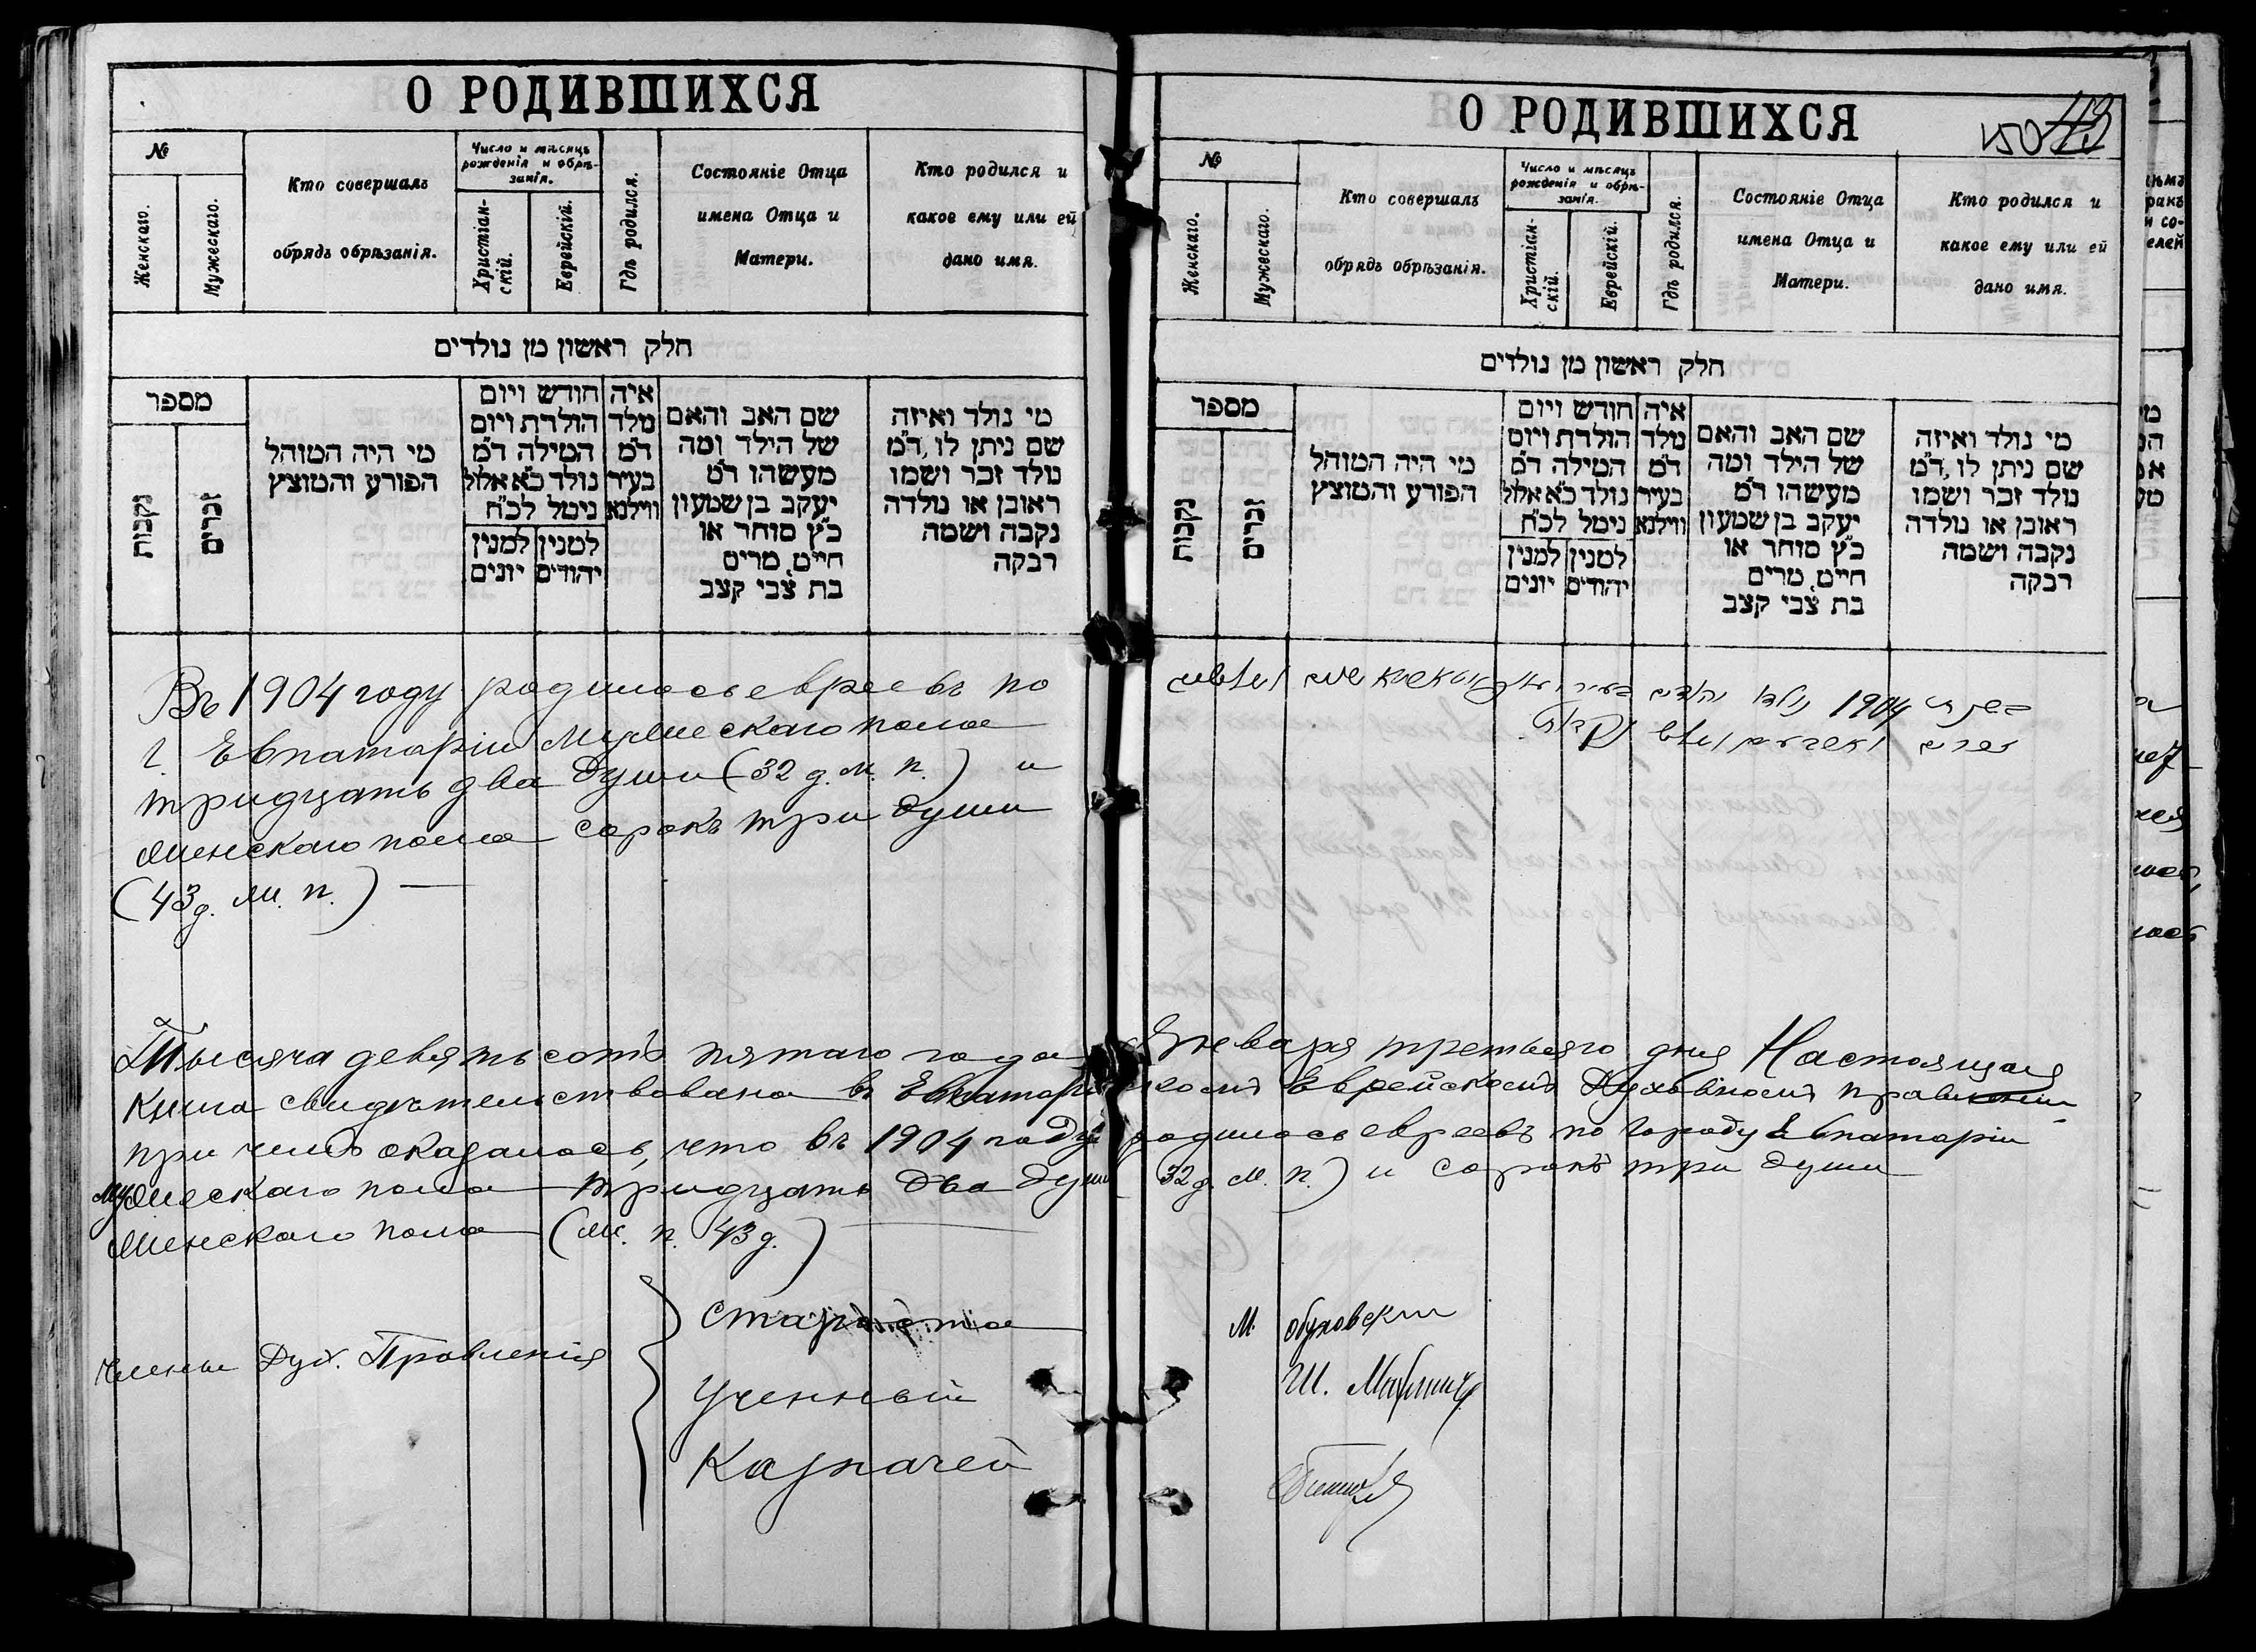 О РОДИВШИХСЯ
№
Женскаго.
Мужескаго.
Кто совершалъ
обрядъ обрѣзанія.
Число и мѣсяцъ
рожденія и обрѣ-
занія.
Христіан-
скій.
Еврейскій.
Гдѣ родился.
Состояніе Отца
имена Отца и
Матери.
Кто родился и
какое ему или ей
дано имя.
חלק ראשון מן נולדים
מספר
נקבות
זכרים
מי היה המוהל
הפורע והמוצץ
חודש ויום
הולדת ויום
המילה ד״מ
נולד כ״א אלול
נימל לכ״ח
למנין
יונים
למנין
יהודים
איה
מלד
ד״מ
בעיר
ווילנא
שם האב והאם
של הילד ומה
מעשהו ד״מ
יעקב בן שמעון
כ״ץ סוחר או
חייט, מרים
בת צבי קצב
מי נולד ואיזה
שם ניתן לו, ד״מ
נולד זכר ושמו
ראובן או נולדה
נקבה ושמה
רבקה
Въ 1904 году родилось евреевъ по
г. Евпаторіи Мужескаго пола
тридцать два души (32 д. м. п.) и
женскаго пола сорокъ три души
(43 д. ж. п.)
Тысяча девятьсотъ пятаго года
Книга свидѣтельствована въ Евпаторій
при чемъ оказалось, что въ 1904 году
мужескаго пола тридцать два души
Женскаго пола (ж. п. 43 д.)
Члены Дух. Правленія
Староста
Ученный
Казначей
О РОДИВШИХСЯ
150 43
№
Женскаго.
Мужескаго.
Кто совершалъ
обрядъ обрѣзанія.
Число и мѣсяцъ
рожденія и обрѣ-
занія.
Христіан-
скій.
Еврейскій.
Гдѣ родился.
Состояніе Отца
имена Отца и
Матери.
Кто родился и
какое ему или ей
дано имя.
חלק ראשון מן נולדים
מספר
נקבות
זכרים
מי היה המוהל
הפורע והמוצץ
חודש ויום
הולדת ויום
המילה ד״מ
נולד כ״א אלול
נימל לכ״ח
למנין
יונים
למנין
יהודים
איה
מלד
ד״מ
בעיר
ווילנא
שם האב והאם
של הילד ומה
מעשהו ד״מ
יעקב בן שמעון
כ״ץ סוחר או
חייט, מרים
בת צבי קצב
מי נולד ואיזה
שם ניתן לו, ד״מ
נולד זכר ושמו
ראובן או נולדה
נקבה ושמה
רבקה
בשנת 1904 נולדו יהודים בעיר שנים ושלשים
זכרים וארבעים ושלש נקבות.
Января третьяго дня Настоящая
скомъ Еврейскомъ Духовномъ правленіи
родилось евреевъ по городу Евпаторіи
32 д. м. п.) и сорокъ три души
М. Обуховскій
Ш.